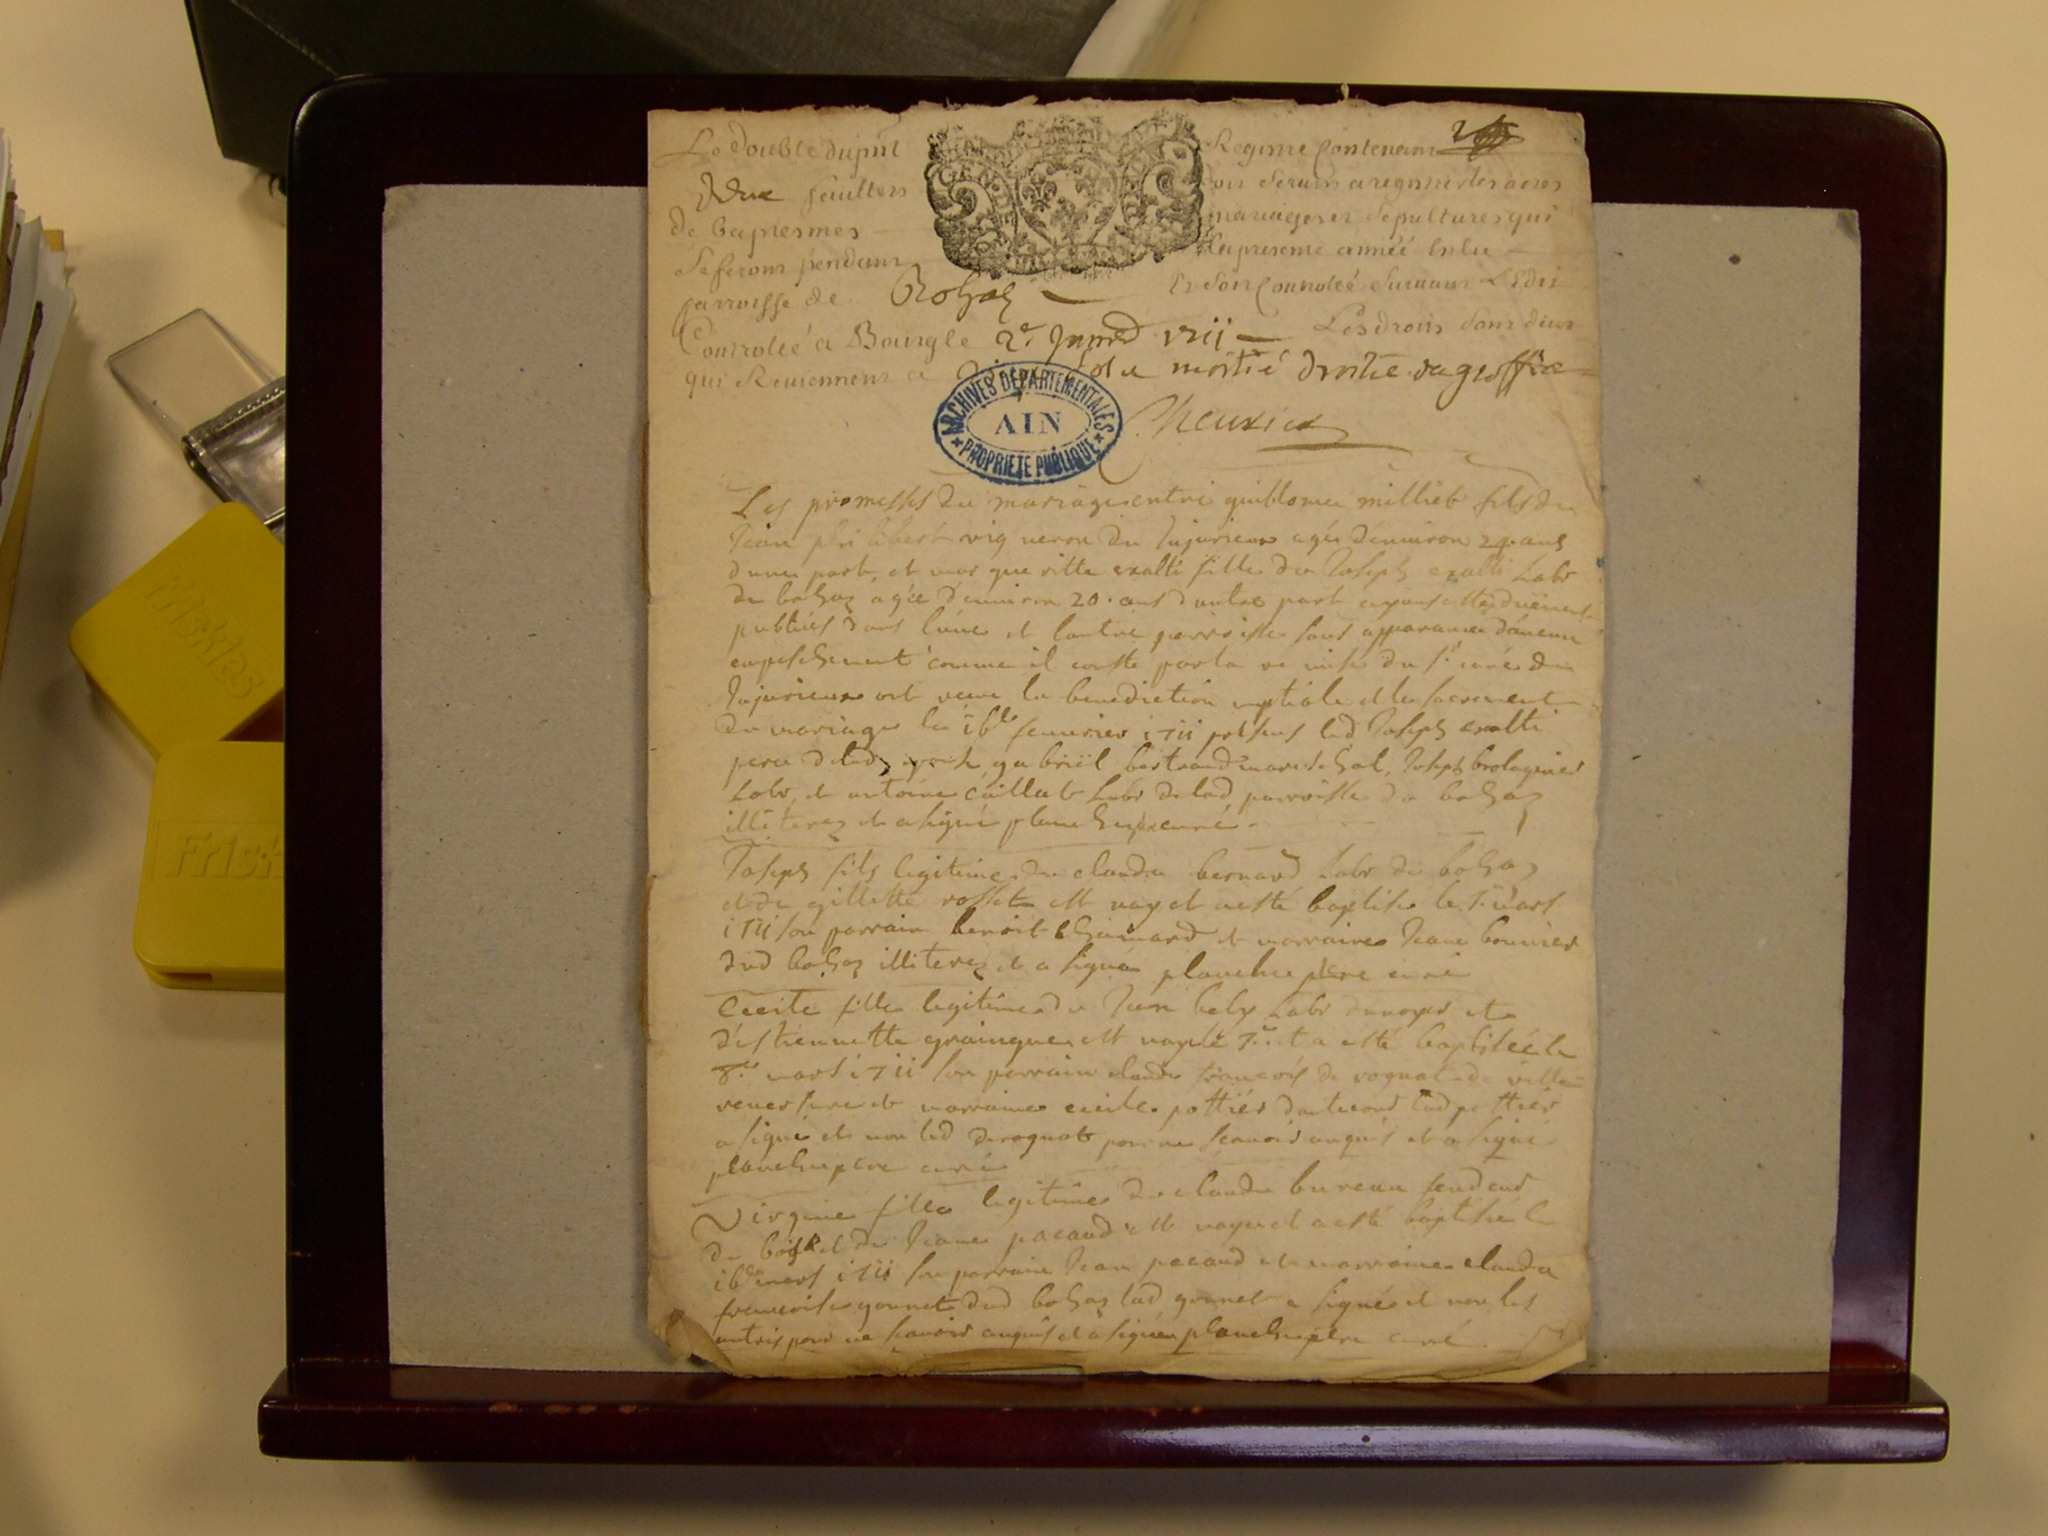 Le double du pnt Registre Contenant 2
Deux feuillets ou seront aregistres actes
de baptesmes mariages et sepultures qui
se feront pendant la presente année en la
parroisse de Bohas Et don Controlée suivant L'Edit
Controlée a Bourg le 2e Janvd 1711 Les droits sont deux
qui Reviennent a sol moitié droitte du greffier
ARCHIVES DÉPARTEMENTALES
AIN
PROPRIÉTÉ PUBLIQUE
Les promesses du mariage entre guilloume millieb fils de
Jean philibert vigneron du Injurieux agé d'environ ans
d'une part, et margueritte exalti fille de Joseph exalti Labr
de bohas agée d'environ 20 ans d'autre part ayans estés duëment
publiées dans l'une et l'autre parroisse sans apparance d'aucun
empeschement comme il conste par la remise du sr curé de
Injurieux ont receu la benediction nuptiale et le sacrement
du mariage le 16e feuvrier 1711 presens led Joseph exalti
pere de lad gabriël bertrand mareschal, Joseph brolagnies
Labr, et antoine caillat Labr de lad parroisse de bohas
illiterez et a signé planchepere curé
Joseph fils legitime de claude bernard Labr de bohas
et de gillette rosset est nay et a esté baptisé le mars
1711 son parrain benoit et marraine Jeane bouvier
dud bohas illiterez et a signé planchepere curé
Cecile fille legitime de Jean Labr et
d'estiennette grainque est nayë le 7e et a esté baptisée le
8e mars 1711 son parrain claude françois de rognat de ville
reversure et marraine cecile pottier lad pottier
a signé et non led derognat pour ne scavoir enquis et a signé
planchepere curé
Virgine fille legitime de claude bureau
de bohas et de Jeane pacaud est nayë et a esté baptisée le
16e mars 1711 son parrain Jean pacaud et marraine claudia
françoise gonnet dud bohas lad gonnet a signé et non les
autres pour ne scavoir enquis et a signé planchepere curé
Friskies
Frisk